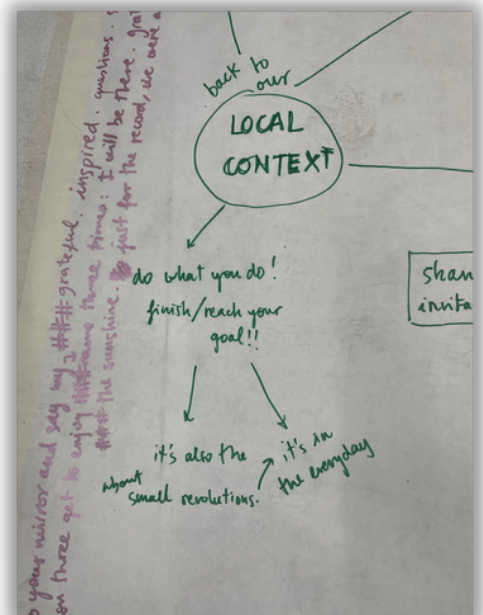 back to
our
LOCAL
CONTEXT
do what you do!
finish/reach your
goal!!
it's also the
about
small revolutions.
it's in
the everyday
shar
invita
your mirror and say my grateful. inspired. questions.
on three get to enjoy three times: I will be there.
the sunshine. just for the record, we were